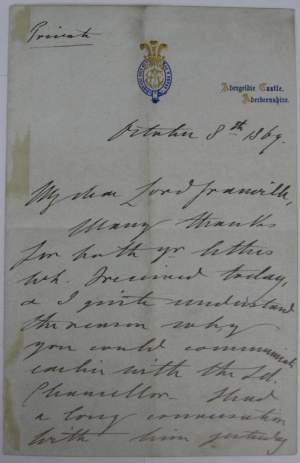 Private
Abergeldie Castle,
Aberdeenshire.
October 8th 1869.
My dear Lord Granville,
Many thanks
for both yr letters
wh. I received today,
& I quite understand
the reason why
you could communicate
earlier with the Ld.
Chancellor I had
a long conversation
with him yesterday